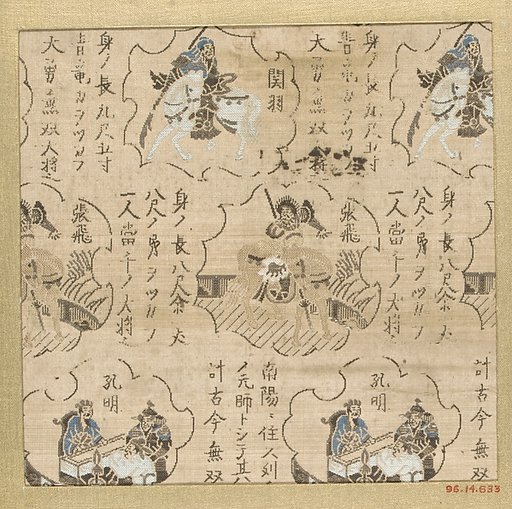 身ノ長九尺五寸
ヲツカフ
大勇無双大将
関羽
身ノ長九尺五寸
ヲツカフ
大勇無双大将
身ノ長八尺余大
八尺ノ ヲツカフ
一人當千ノ大将
張飛
身ノ長八尺余大
八尺ノ ヲツカフ
一人當千ノ大将
張飛
計古今無双
孔明
南陽ニ住人
ノ元帥トシテ其
計古今無双
孔明
96.14.633